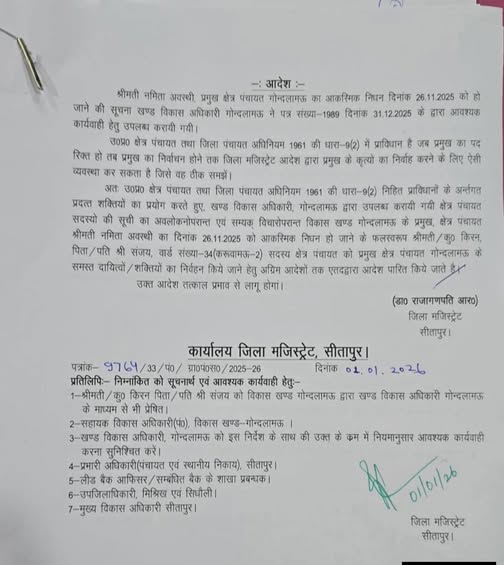 -: आदेश :-
श्रीमती नमिता अवस्थी, प्रमुख क्षेत्र पंचायत गोन्दलामऊ का आकस्मिक निधन दिनांक 26.11.2025 को हो
जाने की सूचना खण्ड विकास अधिकारी गोन्दलामऊ ने पत्र संख्या-1989 दिनांक 31.12.2025 के द्वारा आवश्यक
कार्यवाही हेतु उपलब्ध करायी गयी।
उ0प्र0 क्षेत्र पंचायत तथा जिला पंचायत अधिनियम 1961 की धारा-9(2) में प्राविधान है जब प्रमुख का पद
रिक्त हो तब प्रमुख का निर्वाचन होने तक जिला मजिस्ट्रेट आदेश द्वारा प्रमुख के कृत्यों का निर्वाह करने के लिए ऐसी
व्यवस्था कर सकता है जिसे वह ठीक समझें।
अतः उ0प्र0 क्षेत्र पंचायत तथा जिला पंचायत अधिनियम 1961 की धारा-9(2) निहित प्राविधानों के अर्न्तगत
प्रदत्त शक्तियों का प्रयोग करते हुए, खण्ड विकास अधिकारी, गोन्दलामऊ द्वारा उपलब्ध करायी गयी क्षेत्र पंचायत
सदस्यो की सूची का अवलोकनोपरान्त एवं सम्यक् विचारोपरान्त विकास खण्ड गोन्दलामऊ के प्रमुख, क्षेत्र पंचायत
श्रीमती नमिता अवस्थी का दिनांक 26.11.2025 को आकस्मिक निधन हो जाने के फलस्वरूप श्रीमती/कु0 किरन,
पिता/पति श्री संजय, वार्ड संख्या-34(करूवामऊ-2) सदस्य क्षेत्र पंचायत को प्रमुख क्षेत्र पंचायत गोन्दलामऊ के
समस्त दायित्वों/शक्तियों का निर्वहन किये जाने हेतु अग्रिम आदेशों तक एतदद्वारा आदेश पारित किये जाते है।
उक्त आदेश तत्काल प्रभाव से लागू होगा।
(डा0 राजागणपति आर0)
जिला मजिस्ट्रेट
सीतापुर।
कार्यालय जिला मजिस्ट्रेट, सीतापुर।
पत्रांक- 9764/33/पं0/ ग्रा0पं0स0/2025-26 दिनांक 01.01.2026
प्रतिलिपिः- निम्नांकित को सूचनार्थ एवं आवश्यक कार्यवाही हेतुः-
1-श्रीमती/कु0 किरन पिता/पति श्री संजय को विकास खण्ड गोन्दलामऊ द्वारा खण्ड विकास अधिकारी गोन्दलामऊ
के माध्यम से भी प्रेषित।
2-सहायक विकास अधिकारी(पं0), विकास खण्ड-गोन्दलामऊ ।
3-खण्ड विकास अधिकारी, गोन्दलामऊ को इस निर्देश के साथ की उक्त के क्रम में नियमानुसार आवश्यक कार्यवाही
करना सुनिश्चित करें।
4-प्रभारी अधिकारी(पंचायत एवं स्थानीय निकाय), सीतापुर।
5-लीड बैंक आफिसर/सम्बंधित बैंक के शाखा प्रबन्धक।
6-उपजिलाधिकारी, मिश्रिख एवं सिधौली।
7-मुख्य विकास अधिकारी सीतापुर।
01/01/26
जिला मजिस्ट्रेट
सीतापुर।